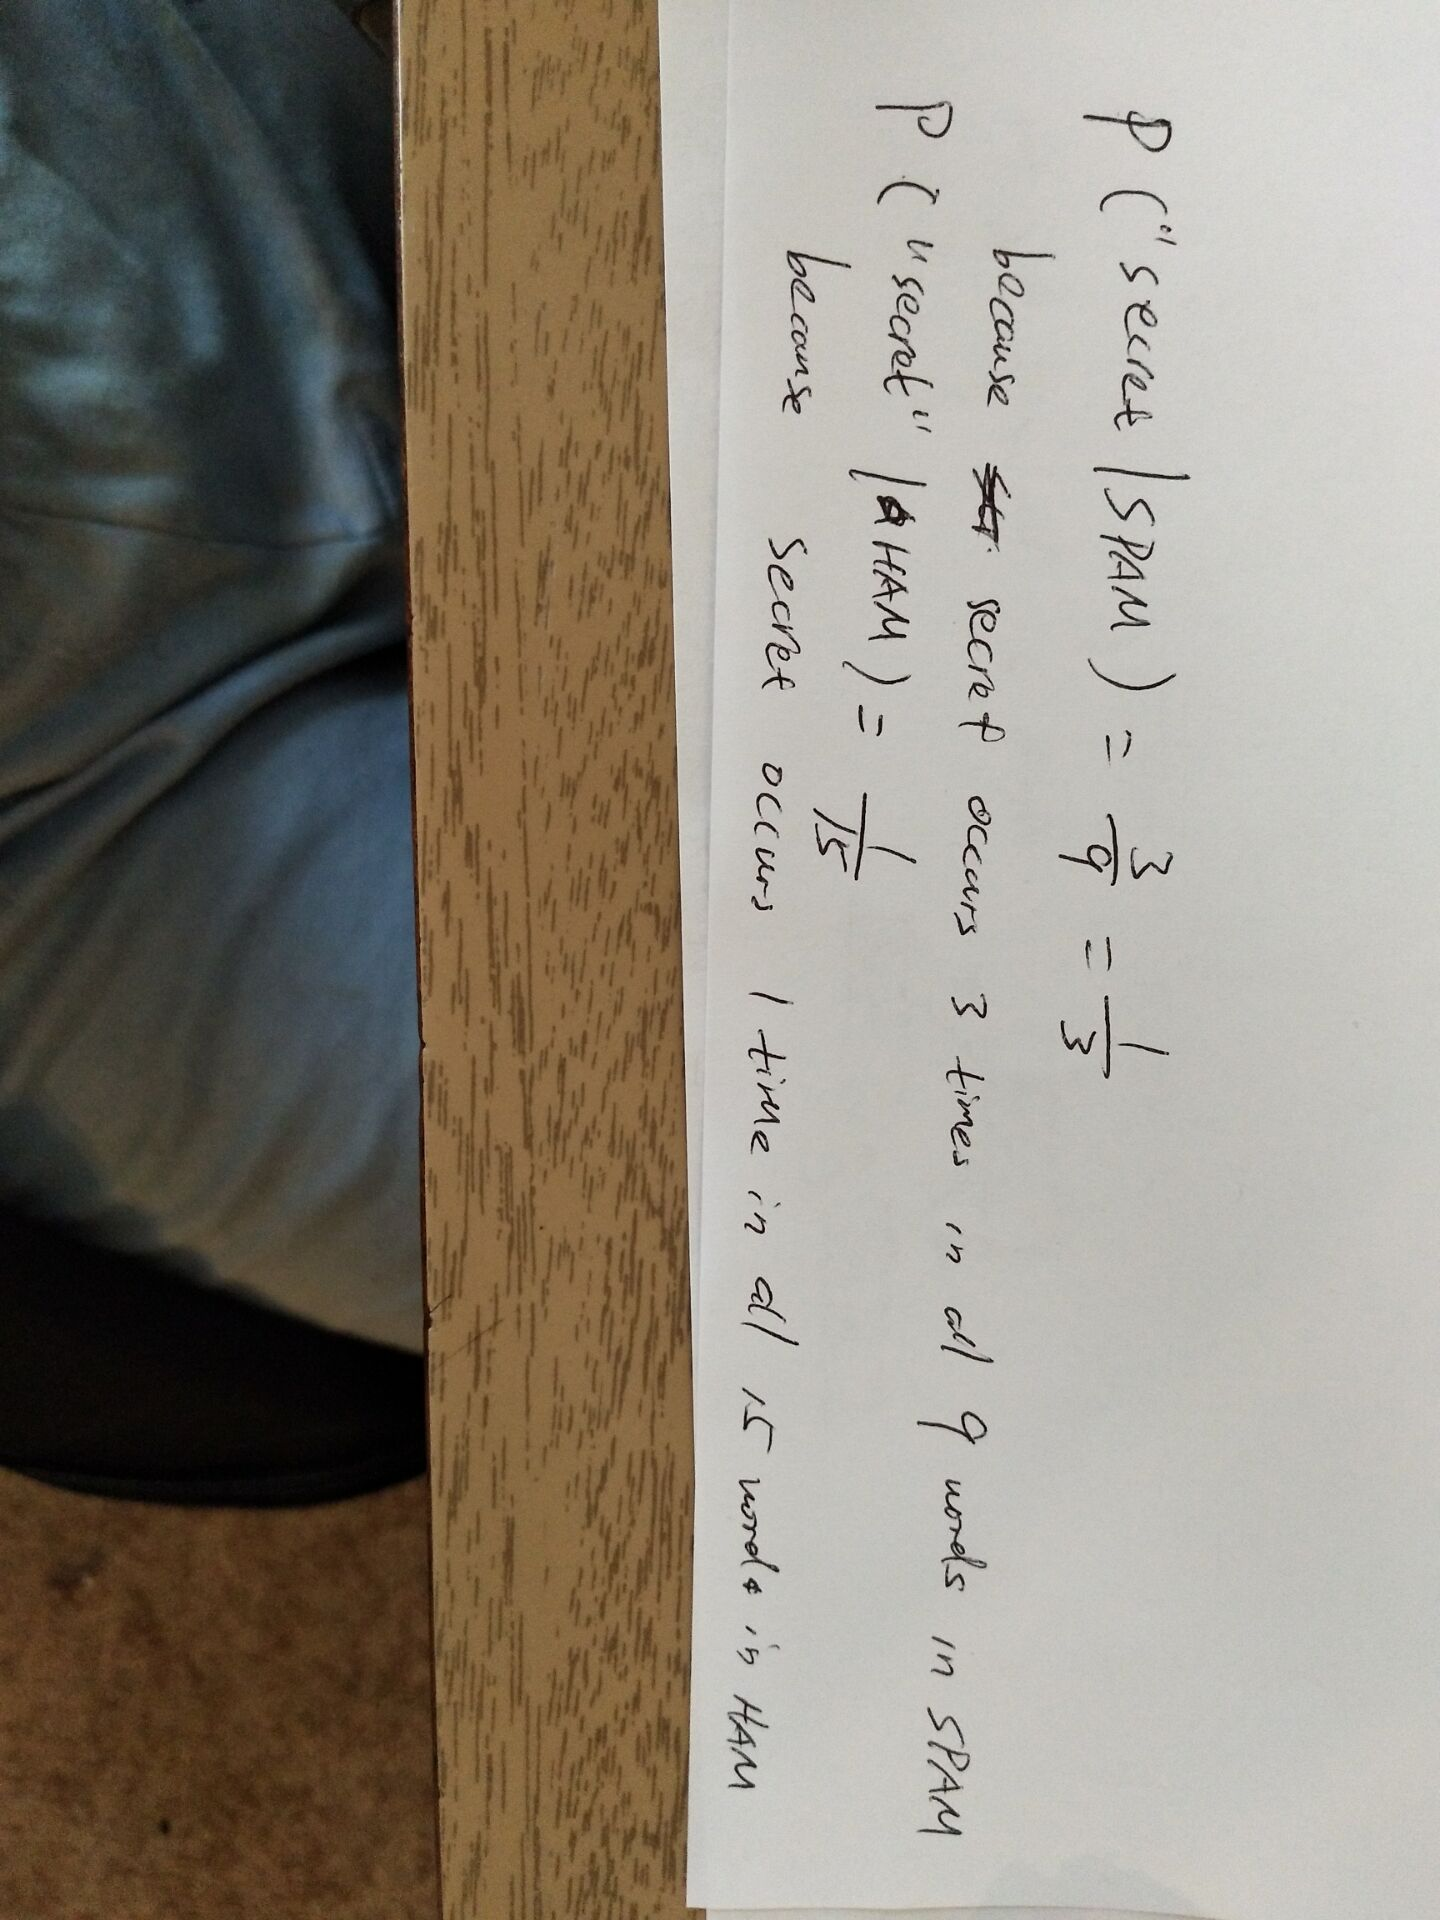 P ("secret | SPAM) = 3/9 = 1/3
because secret occurs 3 times in all 9 words in SPAM
P ("secret" | HAM) = 1/15
because secret occurs 1 time in all 15 words in HAM